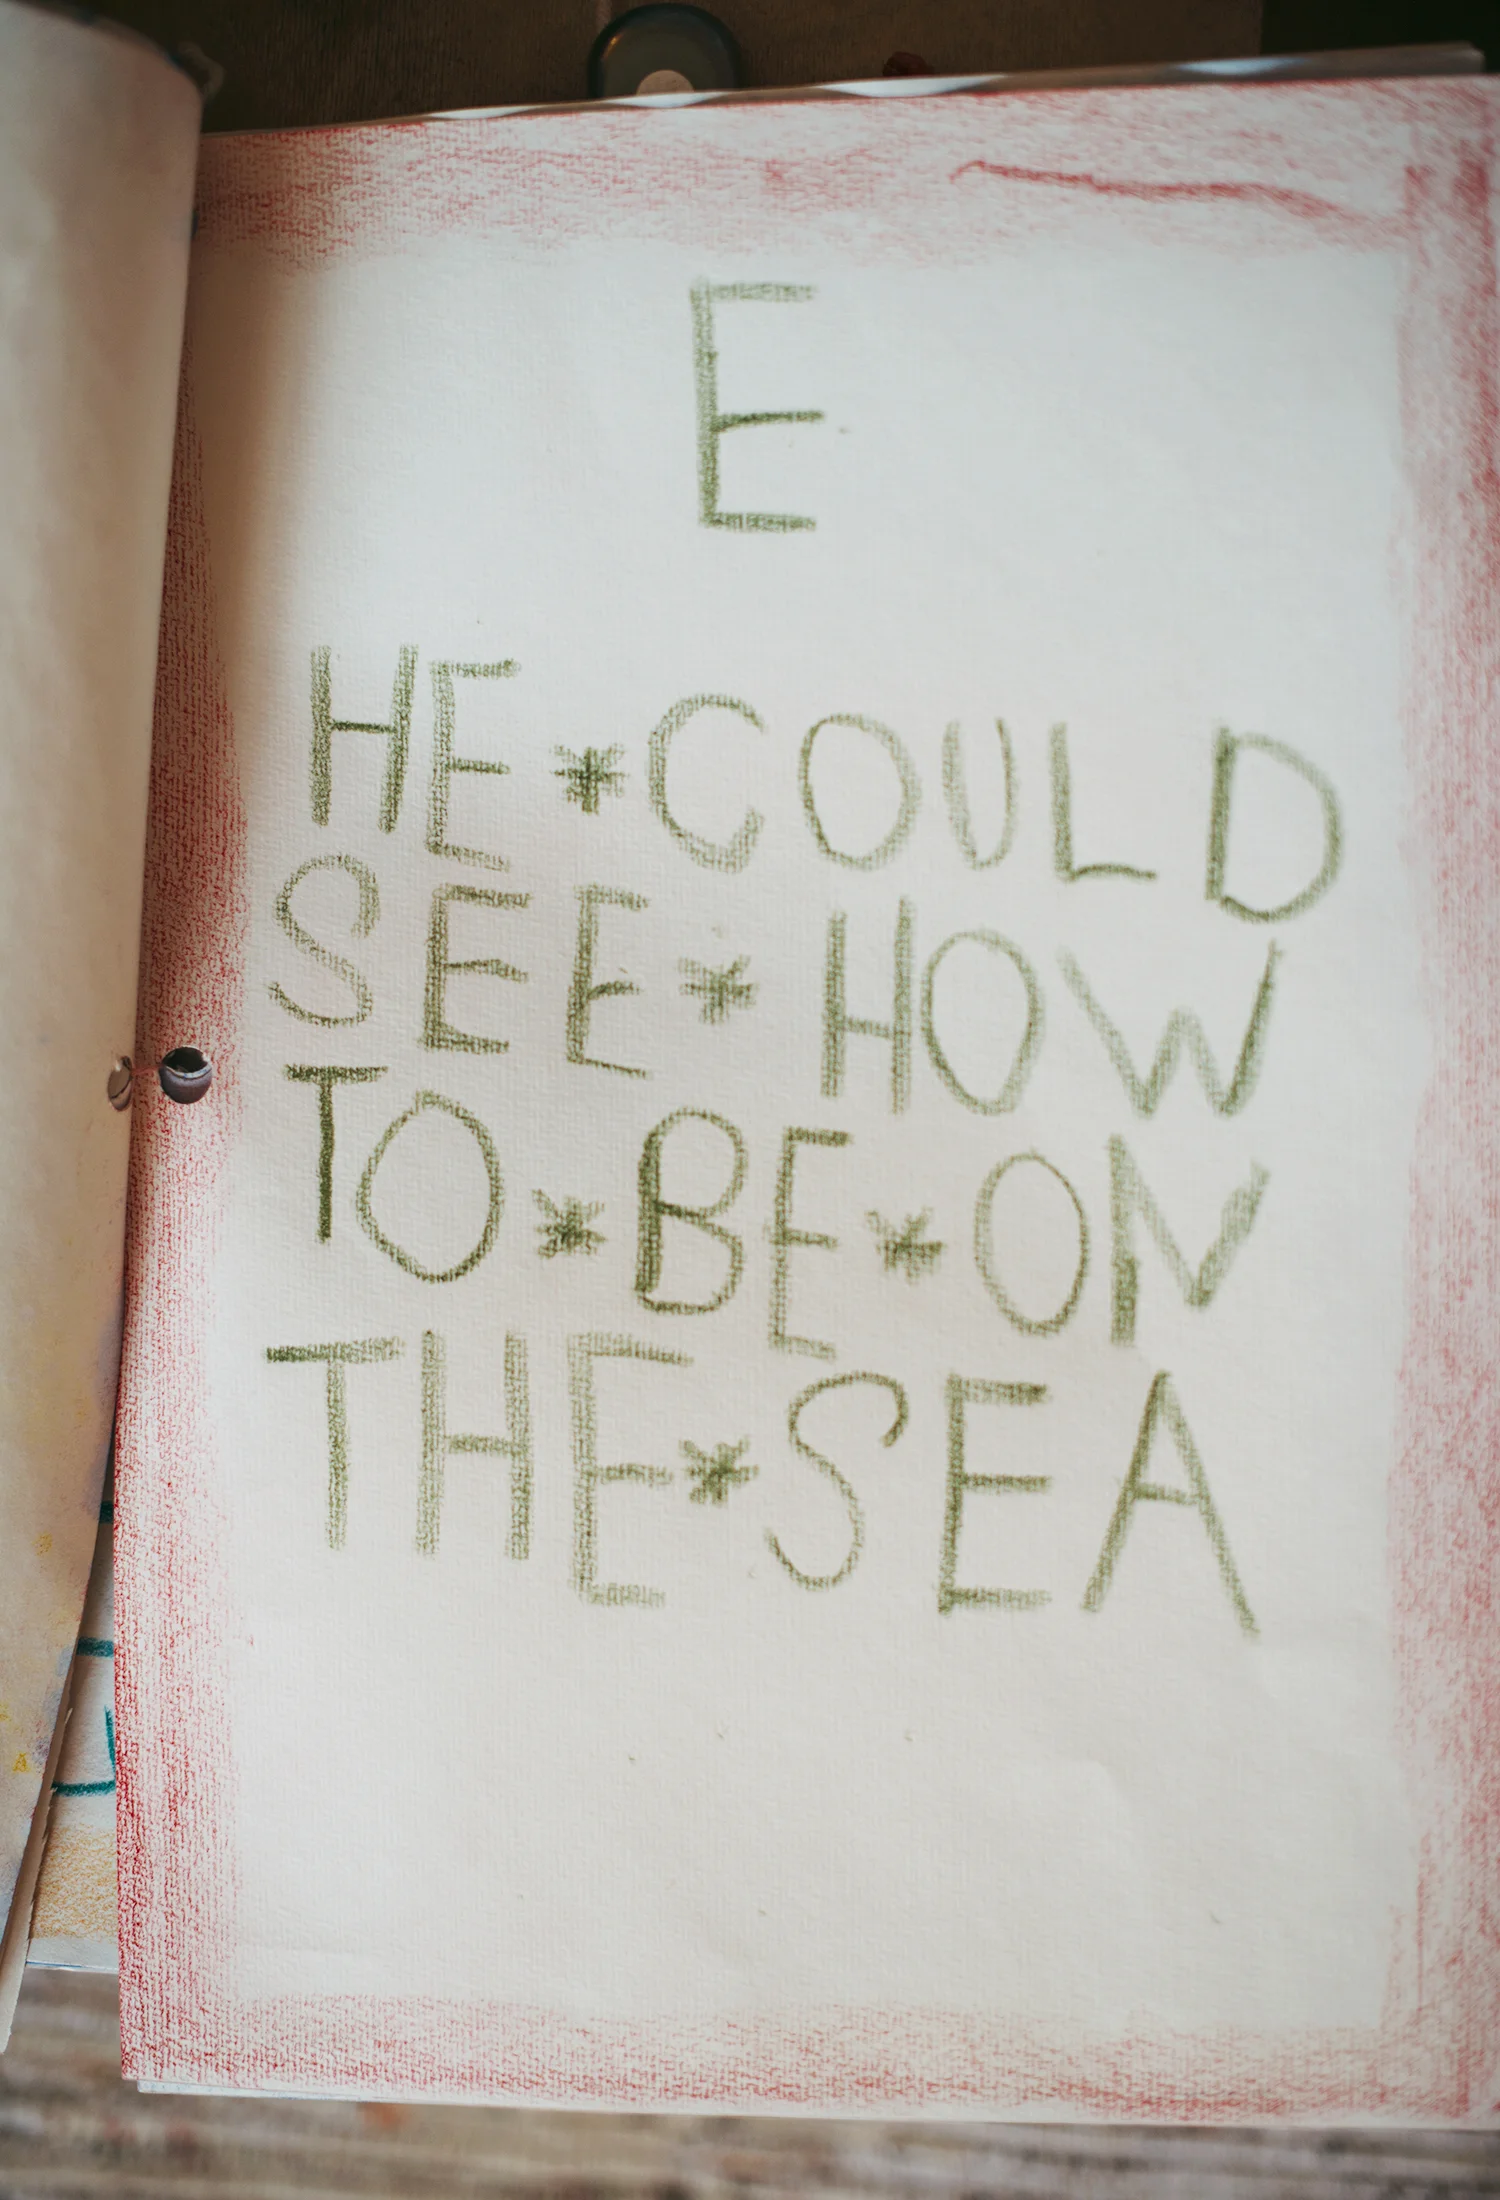 E
HE*COULD
SEE*HOW
TO*BE*ON
THE*SEA